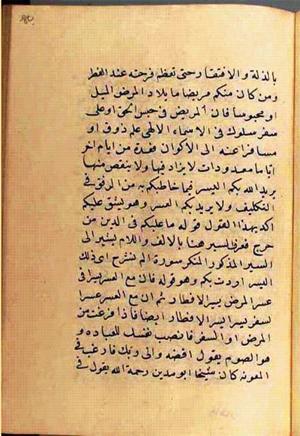 بالذلة والافتقار حتى تعظم فرحته عند الفطر
ومن كان منكم مريضا مابلاد المرض الميل
او محبوسا فان المريض في حبس الحق او على
سفر سلوك في الاسماء الالهي علم ذوق او
مسافرا عنه الى الاكوان فعدة من ايام اخر
اياما معدودات لا يزاد فيها ولا ينقص منها
يريد الله بكم اليسر فيما خاطبكم به من الرفق في
التكليف ولا يريد بكم العسر وهو يشق عليكم
اكد بهذا القول قوله ما عليكم في الدين من
حرج فعرف اليسر هنا بالالف واللام يشير الى
اليسر المذكور المنكر سورة الم نشرح اي ذلك
اليسر اردت بكم وهو قوله فان مع العسر يسرا في
عسر المرض يسر الافطار ثم ان مع العسر عسر
السفر يسرا يسر الافطار ايضا فاذا فرغت من
المرض او السفر فانصب نفسك للعباده و
هو الصوم يقول اقضه والى ربك فارغب في
المعونه كان شيخنا ابو مدين رحمة الله يقول في